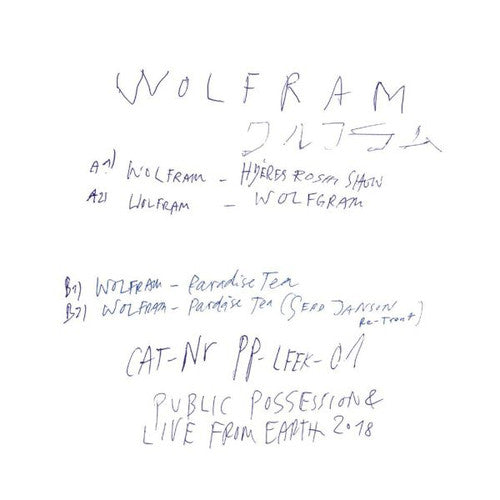 WOLFRAM
A1) WOLFRAM - HYÈRES ROSHI SHOW
A2) WOLFRAM - WOLFGRAM
B1) WOLFRAM - Paradise Tea
B2) WOLFRAM - Paradise Tea (GERD JANSON Re-Treat)
CAT-Nr PP-LFEK-01
PUBLIC POSSESSION &
LIVE FROM EARTH 2018